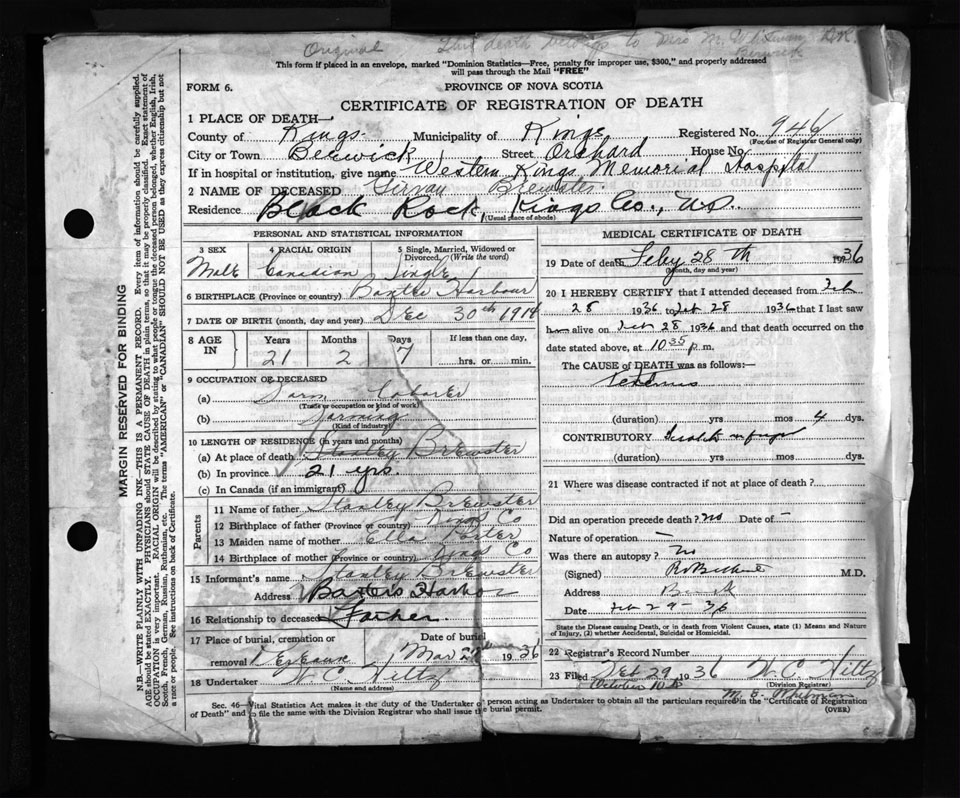 Original This death belongs to Mrs M. D.R.
Berwick
This form if placed in an envelope, marked "Dominion Statistics—Free, penalty for improper use, $300," and properly addressed
will pass through the Mail "FREE"
FORM 6. PROVINCE OF NOVA SCOTIA
CERTIFICATE OF REGISTRATION OF DEATH
1 PLACE OF DEATH—
County of Kings Municipality of Kings Registered No. 946
(For use of Registrar General only)
City or Town Berwick Street Orchard House No.
If in hospital or institution, give name Western Kings Memorial Hospital
2 NAME OF DECEASED Brewster
Residence Black Rock, Kings Co., N.S.
(Usual place of abode)
PERSONAL AND STATISTICAL INFORMATION
3 SEX 4 RACIAL ORIGIN 5 Single, Married, Widowed or
Divorced. (Write the word)
Male Canadian Single
6 BIRTHPLACE (Province or country) Baxter Harbour
7 DATE OF BIRTH (month, day and year) Dec 30th 1914
8 AGE IN Years Months Days If less than one day,
21 2 7 hrs. or min.
9 OCCUPATION OF DECEASED
(a) Farm Laborer
(Trade or occupation or kind of work)
(b) Farming
(Kind of industry)
10 LENGTH OF RESIDENCE (in years and months)
(a) At place of death Stanley Brewster
(b) In province 21 yrs.
(c) In Canada (if an immigrant)
Parents
11 Name of father Stanley Brewster
12 Birthplace of father (Province or country) Kings Co
13 Maiden name of mother Ella Porter
14 Birthplace of mother (Province or country) Kings Co
15 Informant's name Stanley Brewster
Address Baxters Harbor
16 Relationship to deceased Father.
17 Place of burial, cremation or Date of burial
removal Mar 1936
18 Undertaker W. C. Hiltz
(Name and address)
MEDICAL CERTIFICATE OF DEATH
19 Date of death Feby 28th 1936
(Month, day and year)
20 I HEREBY CERTIFY that I attended deceased from Feb
28 1936 to Feb 28 1936 that I last saw
him alive on Feb 28 1936 and that death occurred on the
date stated above, at 10 35 p m.
The CAUSE of DEATH was as follows:—
Tetanus
(duration) yrs mos 4 dys.
CONTRIBUTORY
(duration) yrs mos dys.
21 Where was disease contracted if not at place of death?
Did an operation precede death? no Date of –
Nature of operation –
Was there an autopsy? No
(Signed) M.D.
Address
Date Feb 29-36
State the Disease causing Death, or in death from Violent Causes, state (1) Means and Nature
of Injury, (2) whether Accidental, Suicidal or Homicidal.
22 Registrar's Record Number
23 Filed Feb 29 1936 W. C. Hiltz
October 10 (Division Registrar)
M. E.
Sec. 46—Vital Statistics Act makes it the duty of the Undertaker or person acting as Undertaker to obtain all the particulars required in the "Certificate of Registration
of Death" and to file the same with the Division Registrar who shall issue the burial permit. (OVER)
MARGIN RESERVED FOR BINDING
N.B.—WRITE PLAINLY WITH UNFADING INK—THIS IS A PERMANENT RECORD. Every item of information should be carefully supplied.
AGE should be stated EXACTLY. PHYSICIANS should STATE CAUSE OF DEATH in plain terms, so that it may be properly classified. Exact statement of
OCCUPATION is very important. RACIAL ORIGIN will be described by stating to what people or tongue the deceased person belonged, whether English, Irish,
Scotch, French, German, Russian, Ruthenian, etc. The terms "AMERICAN" or "CANADIAN" SHOULD NOT BE USED as they express citizenship but not
a race or people. See instructions on back of Certificate.